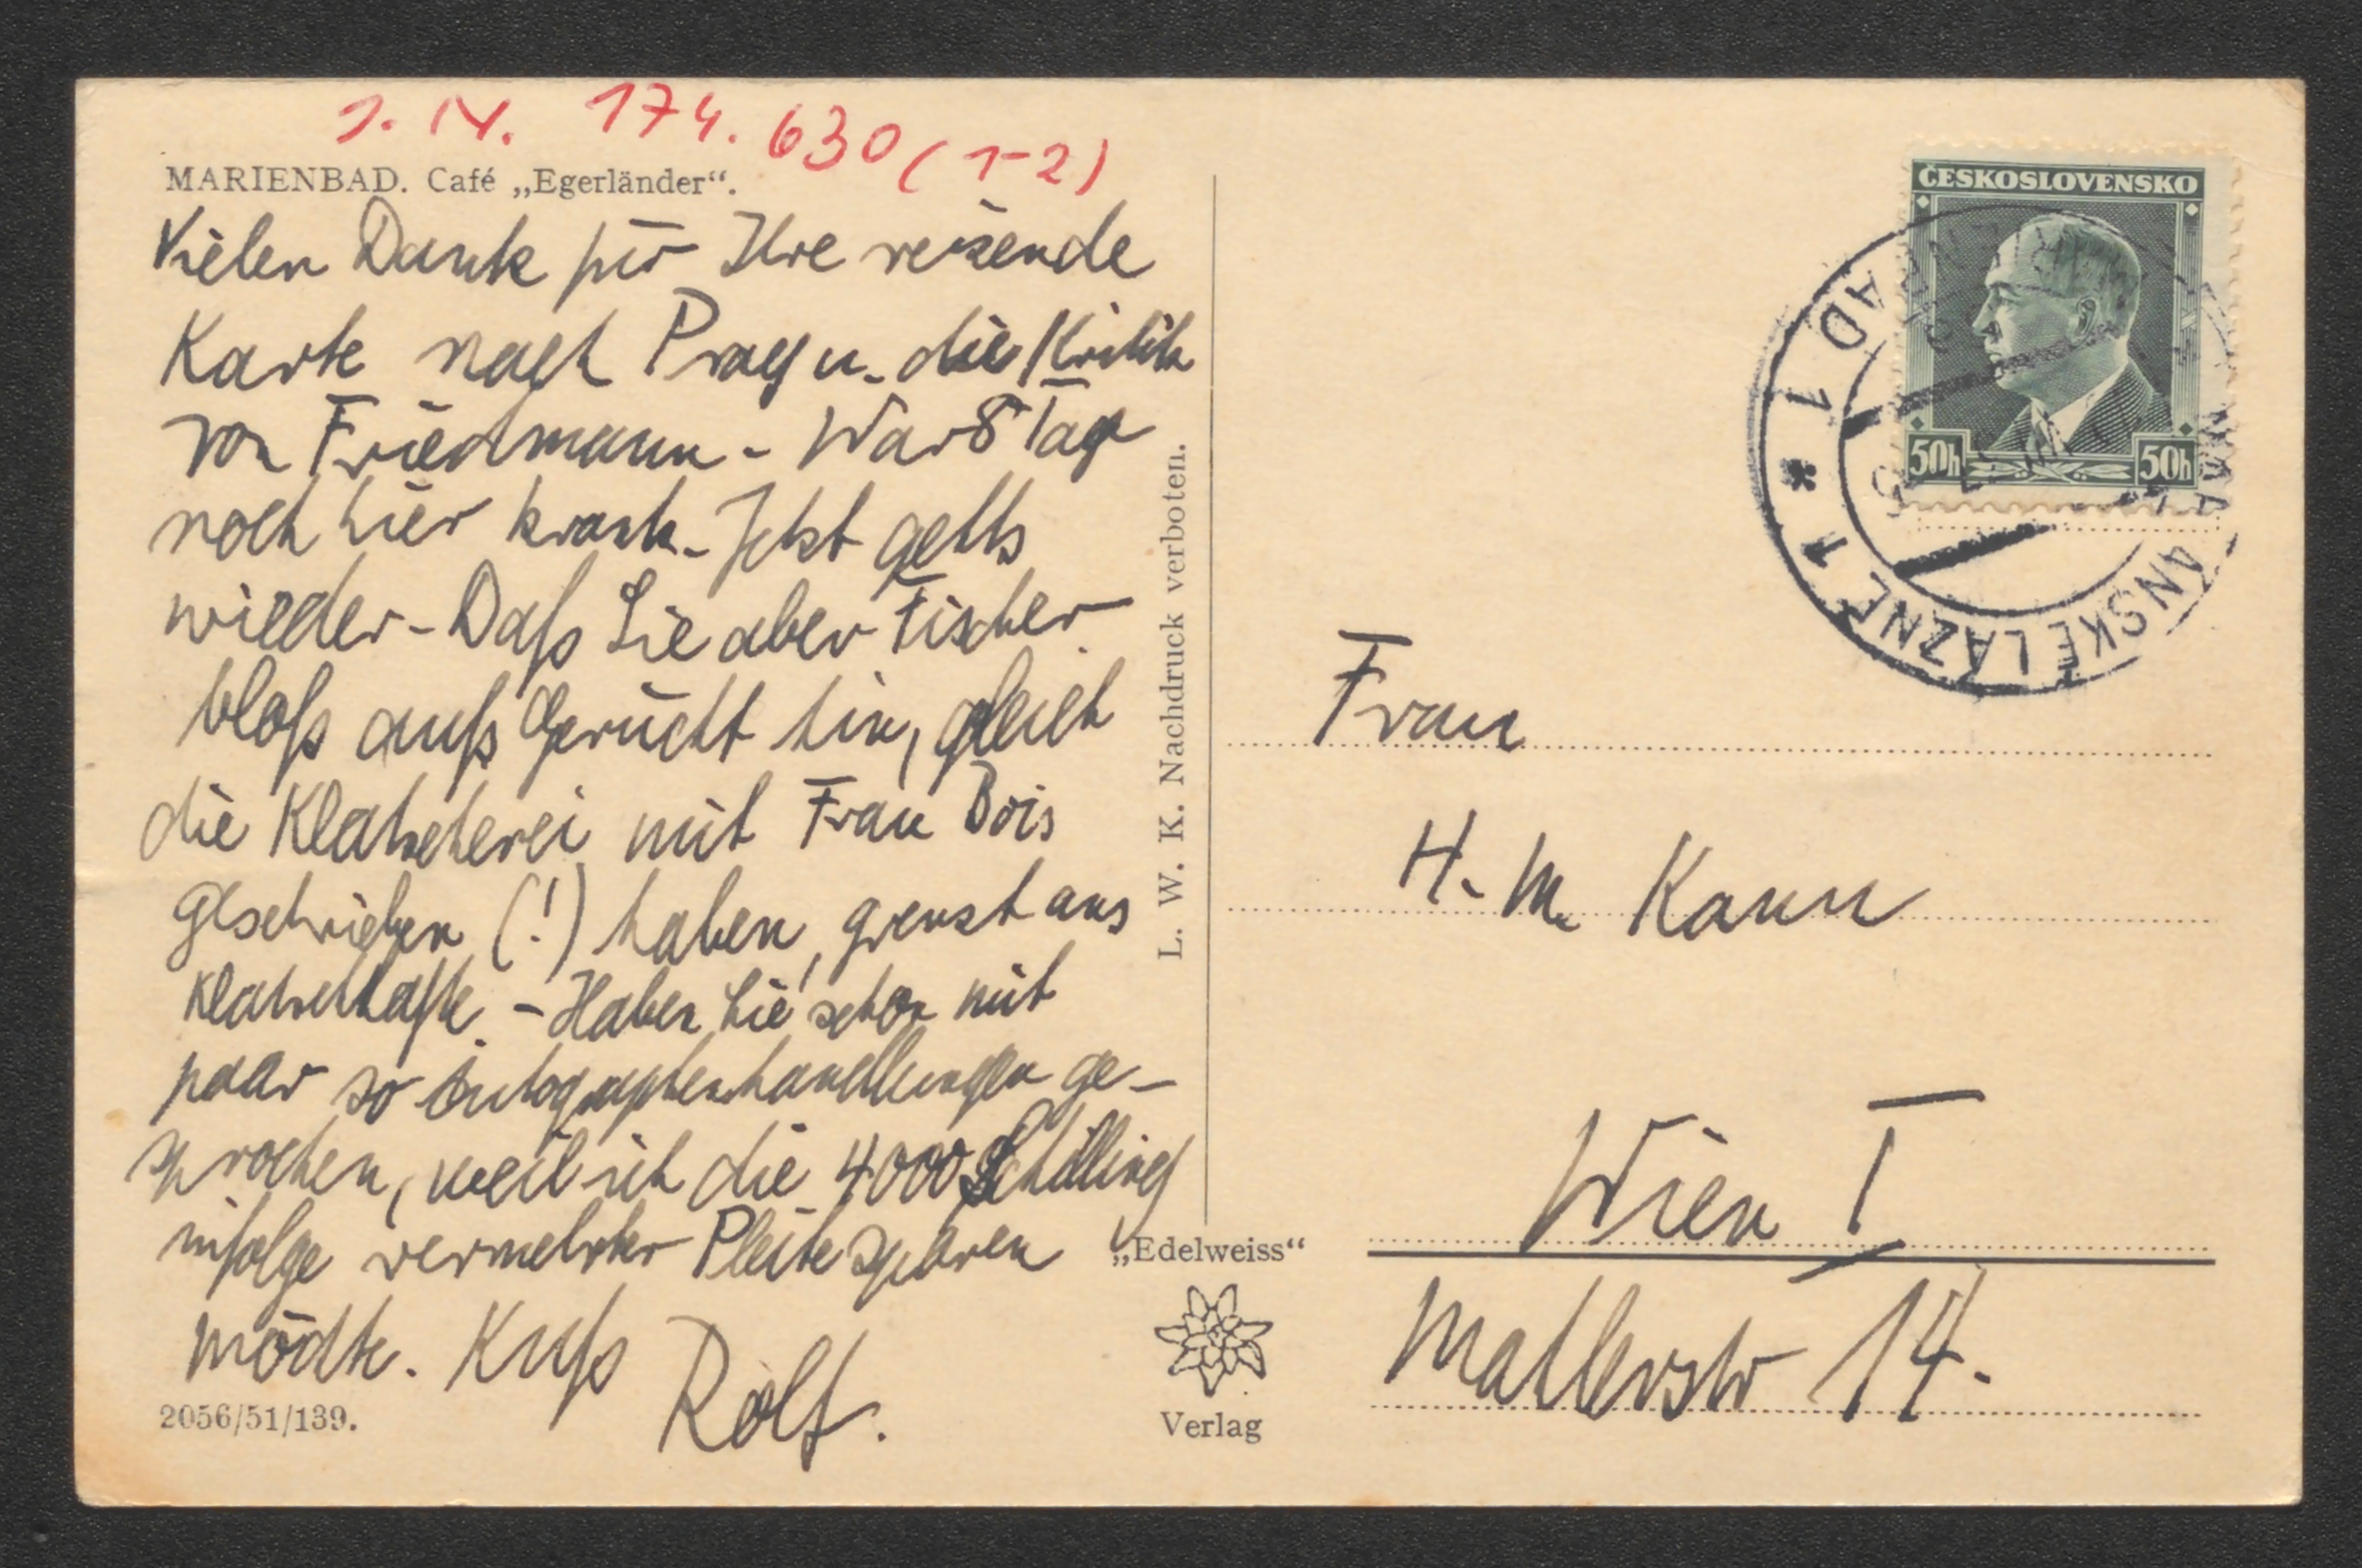 J. N. 174.630 (1-2)
MARIENBAD. Café „Egerländer“.
Vielen Dank für Ihre reizende
Karte nach Prag u. die Kritik
von Friedmann - War 8 Tag
noch hier krank - Jetzt gehts
wieder - Daß Sie aber Fischer
bloß aufs Gerücht hin, gleich
die Klatscherei mit Frau Bois
geschrieben (!) haben, grenzt ans
Klatschhafte. - Haben Sie schon mit
paar so Autographenhandlungen ge-
sprochen, weil ich die 4000 Schilling
infolge vermehrter Pleite sparen
möchte. Kuß
Rolf.
2056/51/139.
L. W. K. Nachdruck verboten.
„Edelweiss“
Verlag
ČESKOSLOVENSKO
50h 50h
LÁZNĚ 1 * 1
Frau
H. M. Kann
Wien I
Mahlerstr 14.